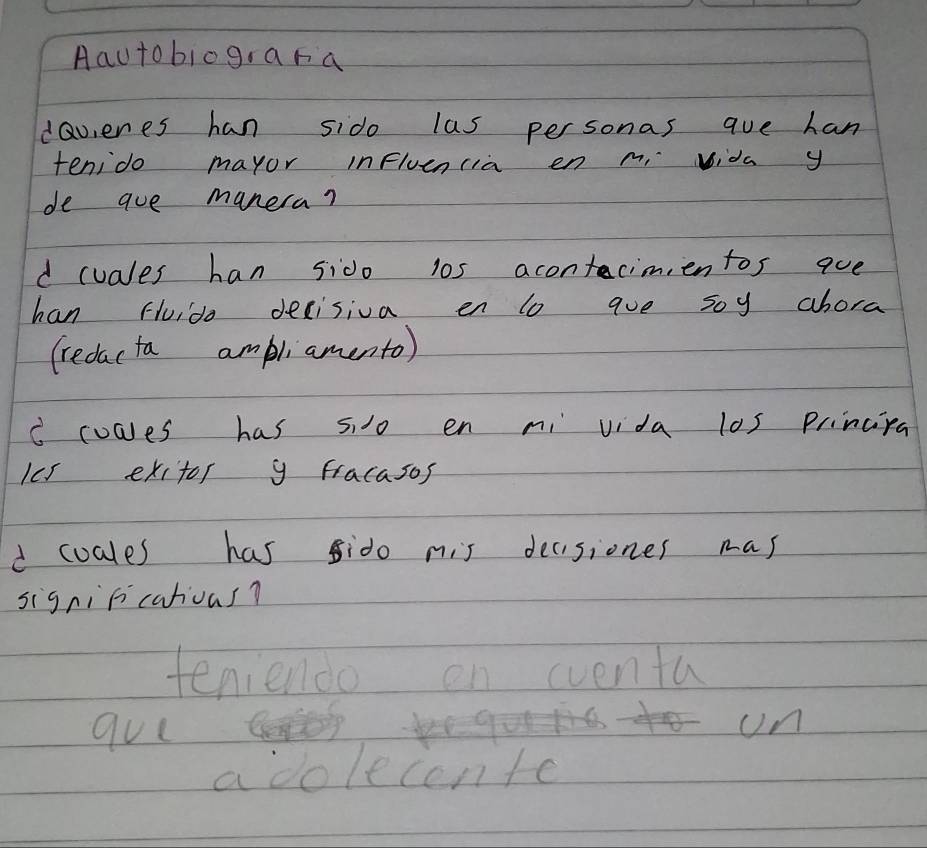 Aautobiografia
¿Quienes han sido las personas que han
tenido mayor influencia en mi vida y
de que manera?
¿cuales han sido los acontecimientos que
han fluido decisiva en lo que soy ahora
(redacta ampliamento)
¿cuales has sido en mi vida los principa
les exitos y fracasos
¿cuales has sido mis decisiones mas
significativas?
teniendo en cuenta
que un
adolecente